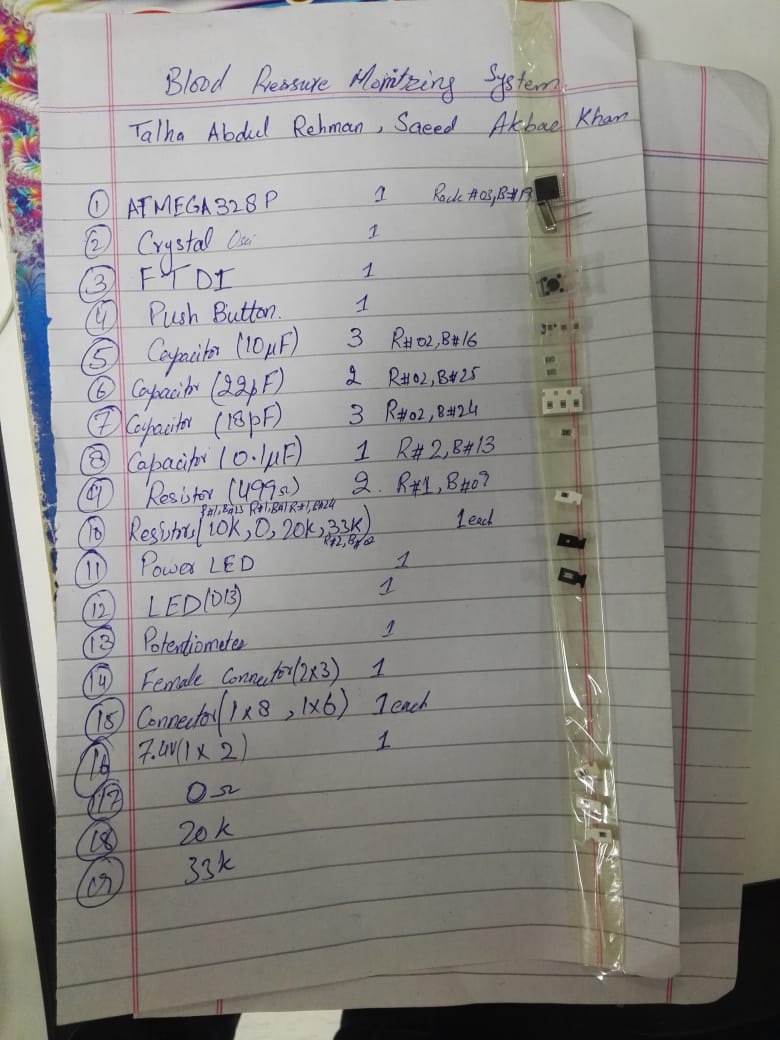 Blood Pressure Monitring System
Talha Abdul Rehman, Saeed Akbar Khan
① ATMEGA328P 1 Rack #03, B#13
② Crystal Osci 1
③ FTDI 1
④ Push Button. 1
⑤ Capacitor (10µF) 3 R#02, B#16
⑥ Capacitor (22pF) 2 R#02, B#25
⑦ Capacitor (18pF) 3 R#02, B#24
⑧ Capacitor (0.1µF) 1 R#2, B#13
⑨ Resistor (499Ω) 2. R#1, B#09
R#1, B#23 R#1, B#1 R#1, B#24
⑩ Resistors (10K, 0, 20K, 33K) 1 each
R#2, B#02
⑪ Power LED 1
⑫ LED (D13) 1
⑬ Potentiometer 1
⑭ Female Connector (2x3) 1
⑮ Connector (1x8, 1x6) 1 each
⑯ 7.4V (1x2) 1
⑰ 0Ω
⑱ 20K
⑲ 33K